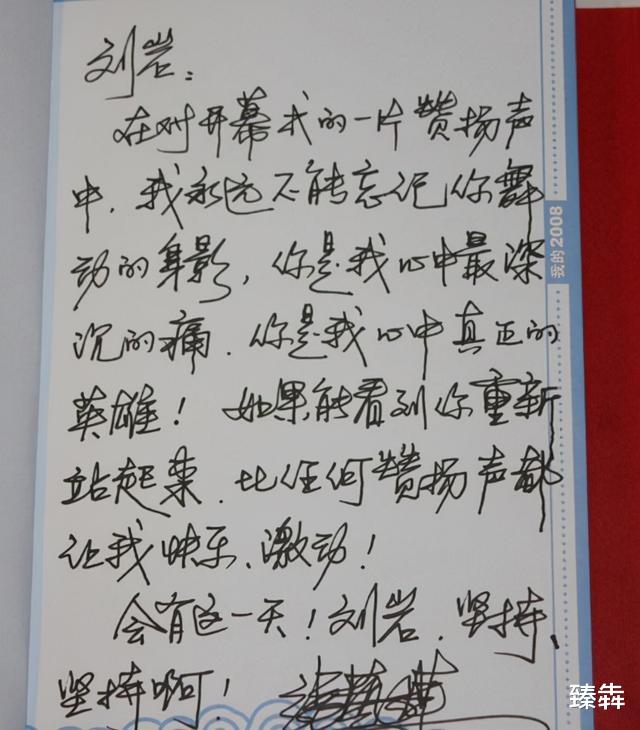 刘岩：
在对开幕式的一片赞扬声
中，我永远不能忘记你舞
动的身影，你是我心中最深
沉的痛．你是我心中真正的
英雄！如果能看到你重新
站起来．比任何赞扬声都
让我快乐、激动！
会有这一天！刘岩．坚持、
坚持啊！张艺谋
我的2008
臻犇